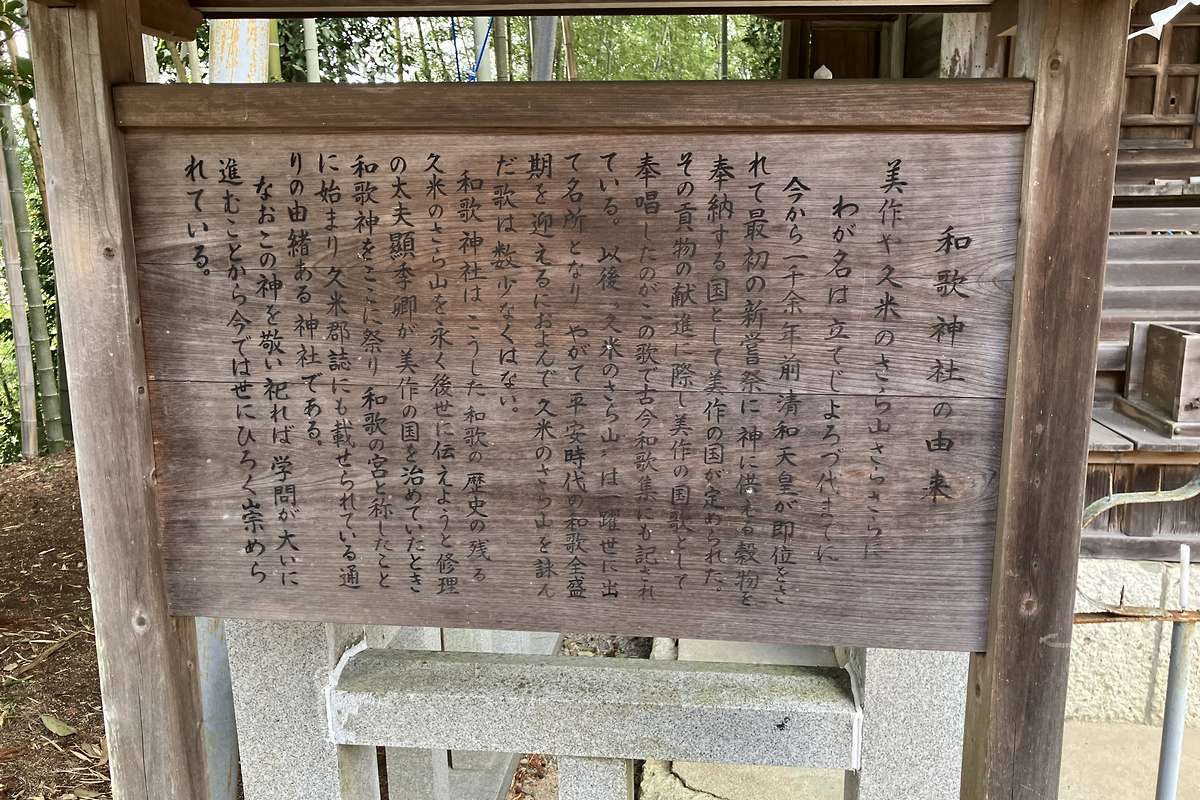 和歌神社の由来
美作や久米のさら山さらさらに
わが名は立てじよろづ代までに
今から一千余年前清和天皇が即位をさ
れて最初の新嘗祭に神に供える穀物を
奉納する国として美作の国が定められた。
その貢物の献進に際し美作の国歌として
奉唱したのがこの歌で古今和歌集にも記され
ている。以後〝久米のさら山〟は一躍世に出
て名所となり やがて平安時代の和歌全盛
期を迎えるにおよんで久米のさら山を詠ん
だ歌は数少なくはない。
和歌神社は こうした和歌の歴史の残る
久米のさら山を永く後世に伝えようと修理
の太夫顯季卿が美作の国を治めていたとき
和歌神をここに祭り 和歌の宮と称したこと
に始まり久米郡誌にも載せられている通
りの由緒ある神社である。
なおこの神を敬い祀れば学問が大いに
進むことから今ではせにひろく崇めら
れている。